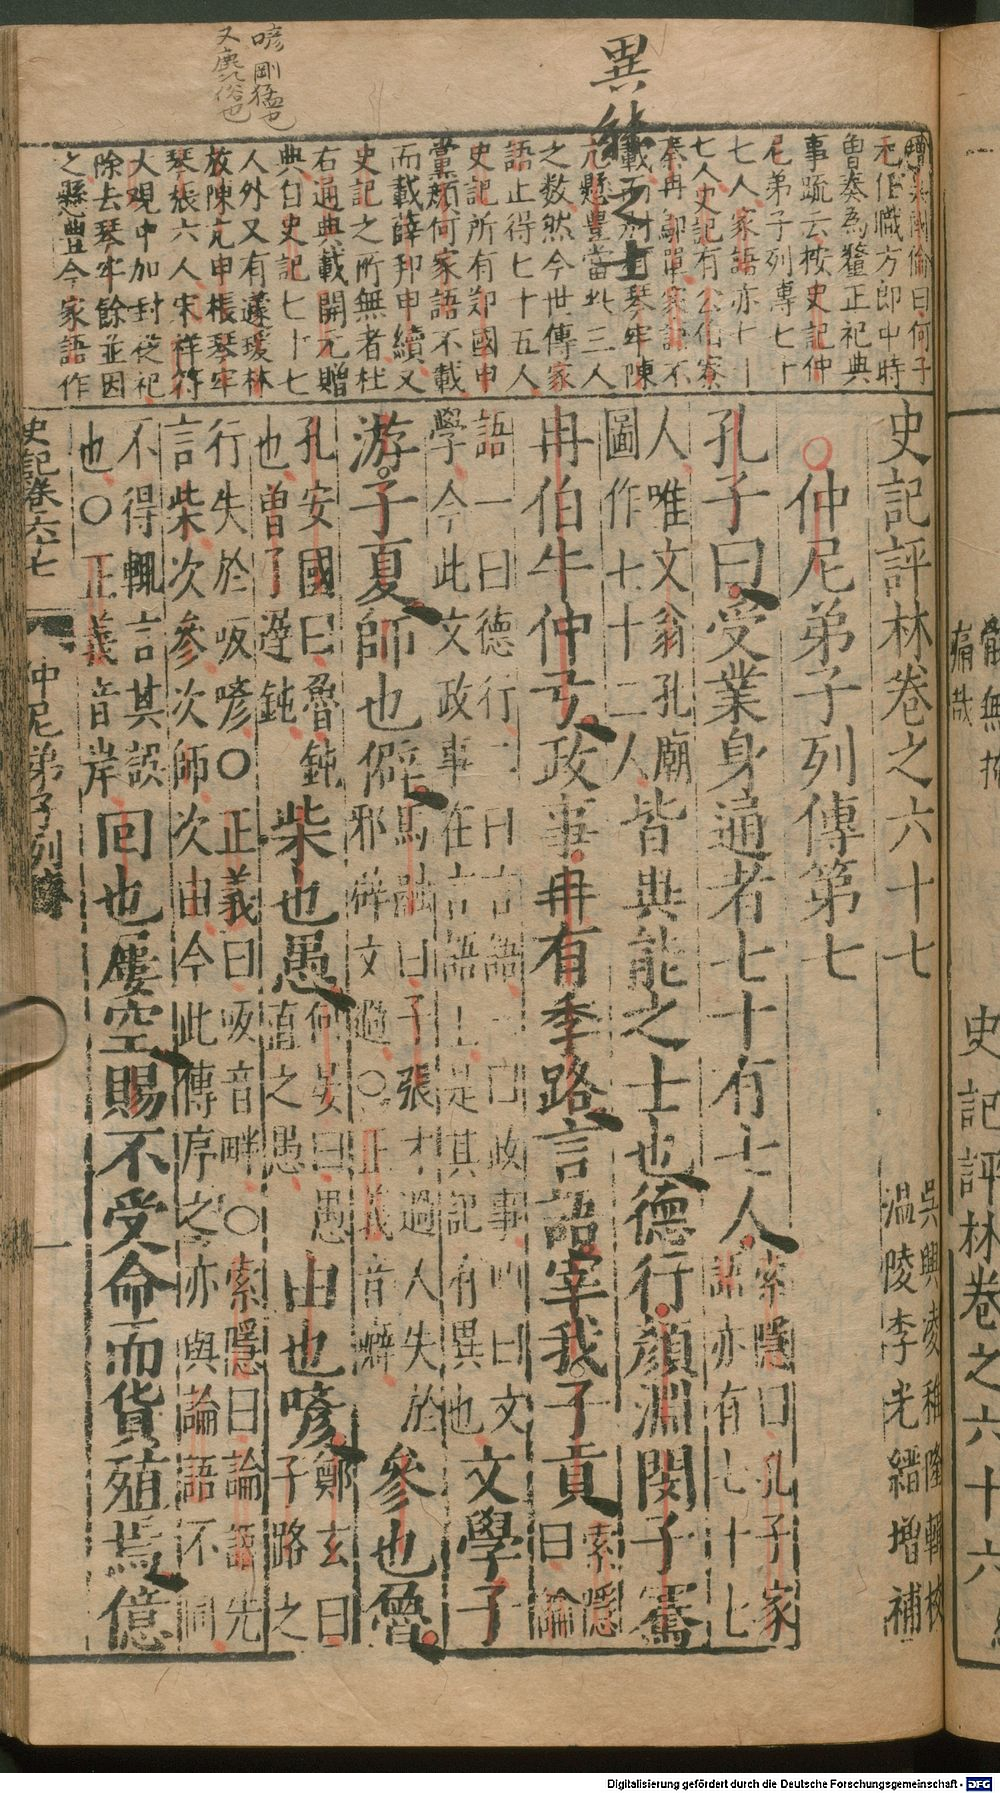 史記評林卷之六十七
吳興凌稚隆輯校
溫陵李光縉增補
仲尼弟子列傳第七
孔子曰受業身通者七十有七人
索隱曰孔子家
語亦有七十七
人唯文翁孔廟
圖作七十二人
皆異能之士也德行顏淵閔子騫
冉伯牛仲弓政事冉有季路言語宰我子貢
索隱
曰論
語一曰德行二曰言語三曰政事四曰文
學今此文政事在言語上是其記有異也
文學子
游子夏師也僻
馬融曰子張才過人失於
邪僻文過○正義音癖
參也魯
孔安國曰魯鈍
也曾子遲鈍
柴也愚
何晏曰愚
直之愚
由也喭
鄭玄曰
子路之
行失於吸喭○正義曰吸音畔○索隱曰論語先
言柴次參次師次由今此傳序之亦與論語不同
不得輒言其誤
也○正義音岸
回也屢空賜不受命而貨殖焉億
史記卷六十七
仲尼弟子列傳
一
元伯職方郎中時
魯奏為釐正祀典
事疏云按史記仲
尼弟子列傳七十
七人家語亦七十
七人史記有公伯寮
秦冉鄡單家語不
載而別有琴牢陳
亢懸亶當此三人
之數然今世傳家
語止得七十五人
史記所有鄭國申
黨顏何家語不載
而載薛邦申續又
史記之所無者杜
右通典載開元贈
典自史記七十七
人外又有蘧瑗林
放陳亢申棖琴牢
琴張六人宋祥符
大觀中加封從祀
除去琴牢餘並因
之懸亶今家語作
異能之士
喭剛猛也
史記評林卷之六十六